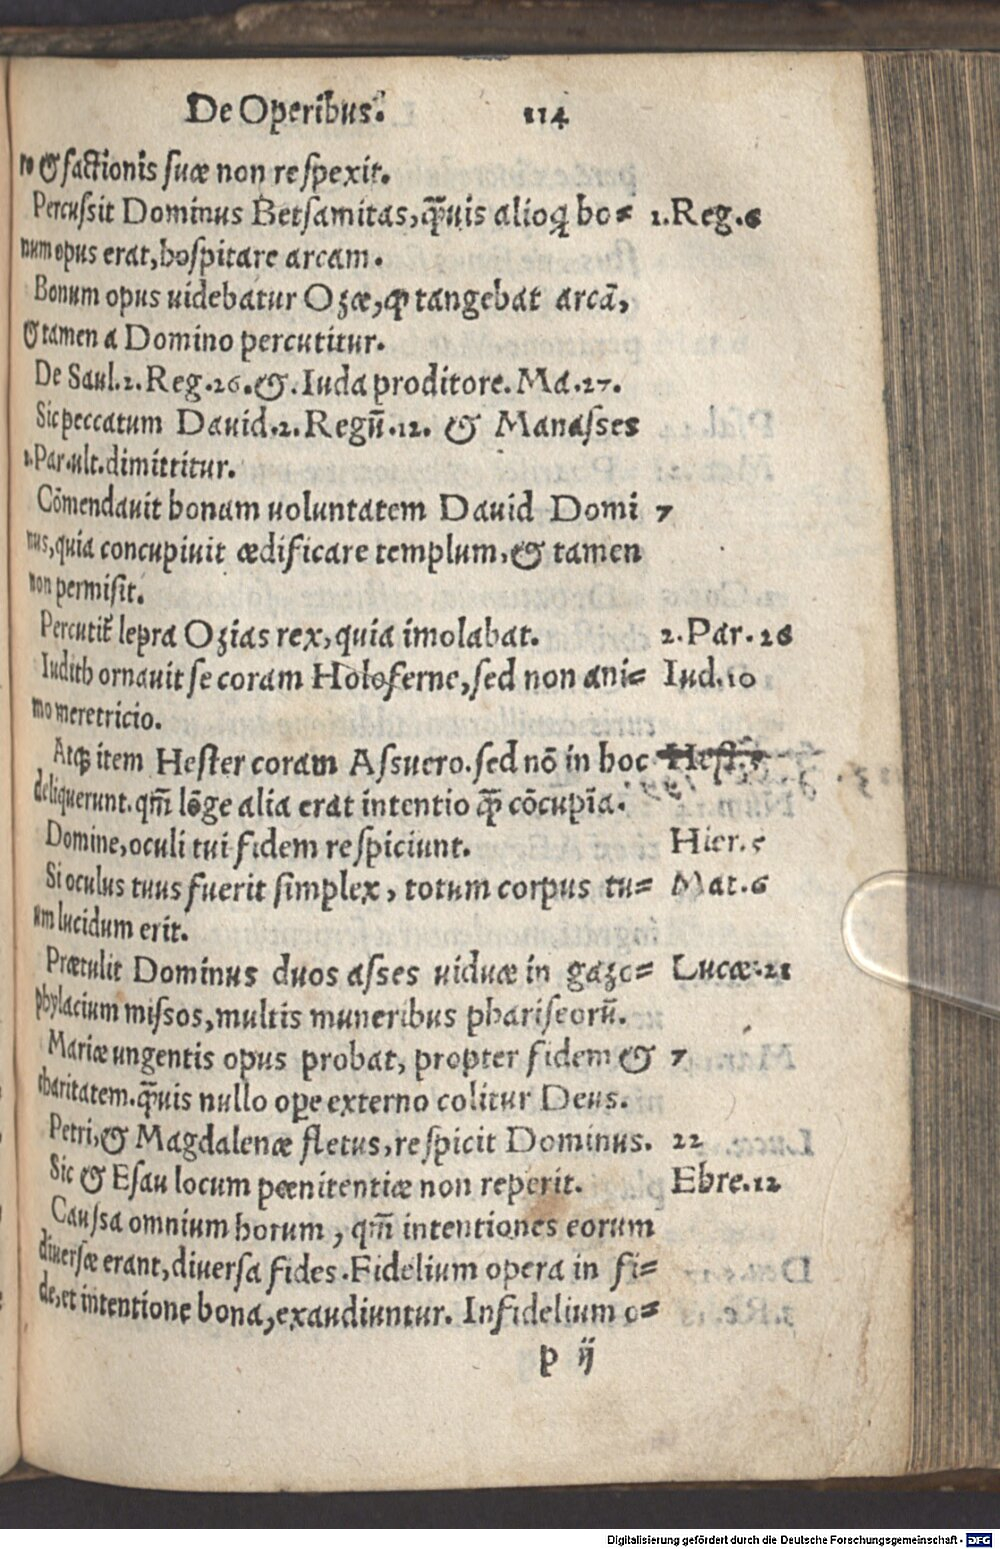 De Operibus. 114
ro & factionis suæ non respexit.
Percussit Dominus Betsamitas, q̃uis alioq̃ bo= 1.Reg.6
num opus erat, hospitare arcam.
Bonum opus uidebatur Ozæ, ꝙ tangebat arcã,
& tamen a Domino percutitur.
De Saul.1.Reg.26.&.Iuda proditore.Ma.27.
Sic peccatum Dauid.2.Regũ.12. & Manasses
2.Par.ult.dimittitur.
Cõmendauit bonam uoluntatem Dauid Domi 7
nus, quia concupiuit ædificare templum, & tamen
non permisit.
Percutit̃ lepra Ozias rex, quia imolabat. 2.Par.26
Iudith ornauit se coram Holoferne, sed non ani= Iud.10
mo meretricio.
Atq̃ item Hester coram Assuero. sed nõ in hoc Hest.5
deliquerunt. qm̃ lõge alia erat intentio q̃ cõcupĩa.
Domine, oculi tui fidem respiciunt. Hier.5
Si oculus tuus fuerit simplex, totum corpus tu= Mat.6
um lucidum erit.
Prætulit Dominus duos asses uiduæ in gazo= Lucæ.21
phylacium missos, multis muneribus phariseorũ.
Mariæ ungentis opus probat, propter fidem & 7
charitatem. q̃uis nullo ope externo colitur Deus.
Petri, & Magdalenæ fletus, respicit Dominus. 22
Sic & Esau locum pœnitentiæ non reperit. Ebre.12
Caussa omnium horum, qm̃ intentiones eorum
diuersæ erant, diuersa fides. Fidelium opera in fi=
de, et intentione bona, exaudiuntur. Infidelium o=
p ij
Digitalisierung gefördert durch die Deutsche Forschungsgemeinschaft - DFG